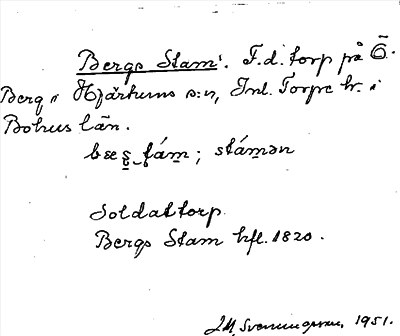 Bergs Stam. F.d. torp på Ö.
Berg i Hjärtums s:n, Inl. Torpe hr. i
Bohus län.
stámən
Soldattorp.
Bergs Stam hfl. 1820.
J.M. Svenningsson, 1951.